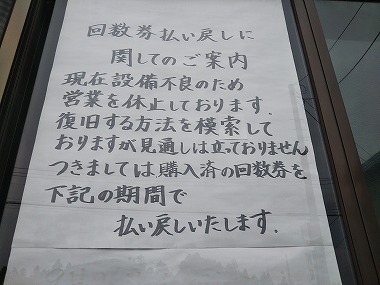 回数券払い戻しに
関してのご案内
現在設備不良のため
営業を休止しております.
復旧する方法を模索して
おりますが見通しは立っておりません
つきましては購入済の回数券を
下記の期間で
払い戻しいたします.